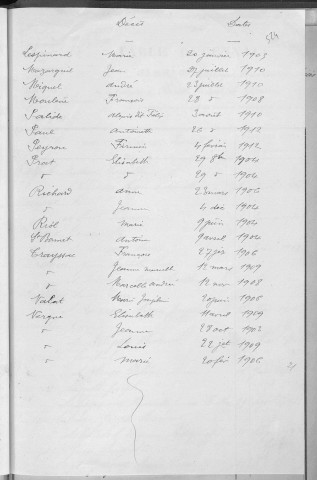 Décès Dates
524
Lespinard Marie 20 janvier 1905
Mazarguil Jean 27 juillet 1910
Miquel André 23 juillet 1910
Moulin François 23 d° 1908
Salide Alexis 3 avril 1910
Paul Antoinette 26 d° 1912
Peyron Firmin 4 février 1912
Prat Elisabeth 29 8bre 1904
d° d° 29 d° 1904
Richard Anna 23 mars 1906
d° Jeanne 4 déc 1904
Riol Marie 9 juin 1904
St Bonnet Antoine 9 avril 1904
Trayssac François 27 1906
d° Jeanne 12 mars 1909
d° Marcelle André 12 nov 1908
Valat Marie 20 juin 1906
Vergne Elisabeth 11 avril 1909
d° Jeanne 23 oct 1902
d° Louis 22 jet 1909
d° Marie 20 fév 1906
21